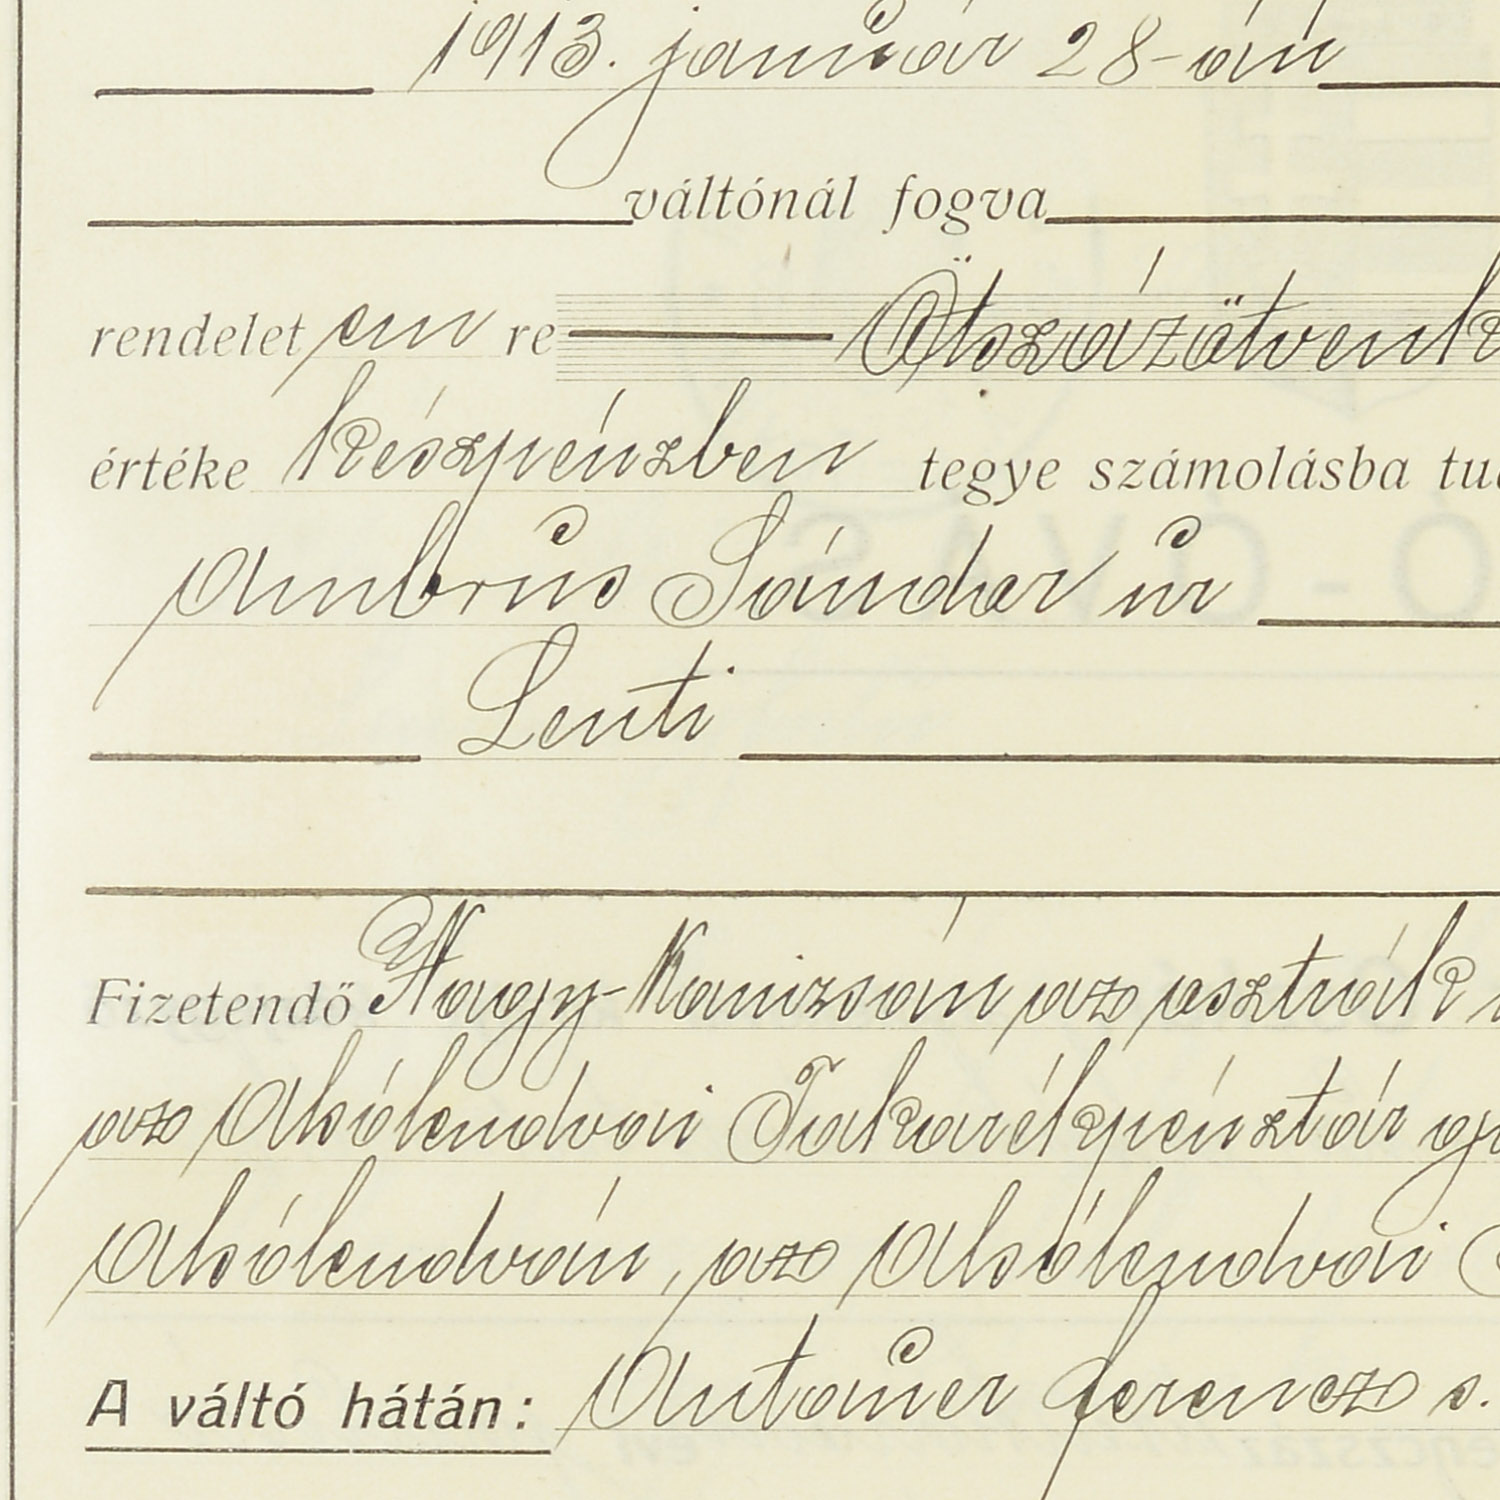 1913. január 28-án
váltónál fogva
rendelet em re Ötszázötven
értéke készpénzben tegye számolásba
Ambrus Sándor úr
Lenti
Fizetendő Nagy-Kanizsán az osztrák
az Alsólendvai Takarékpénztár
Alsólendván, az Alsólendvai
A váltó hátán: Antauer Ferencz s.